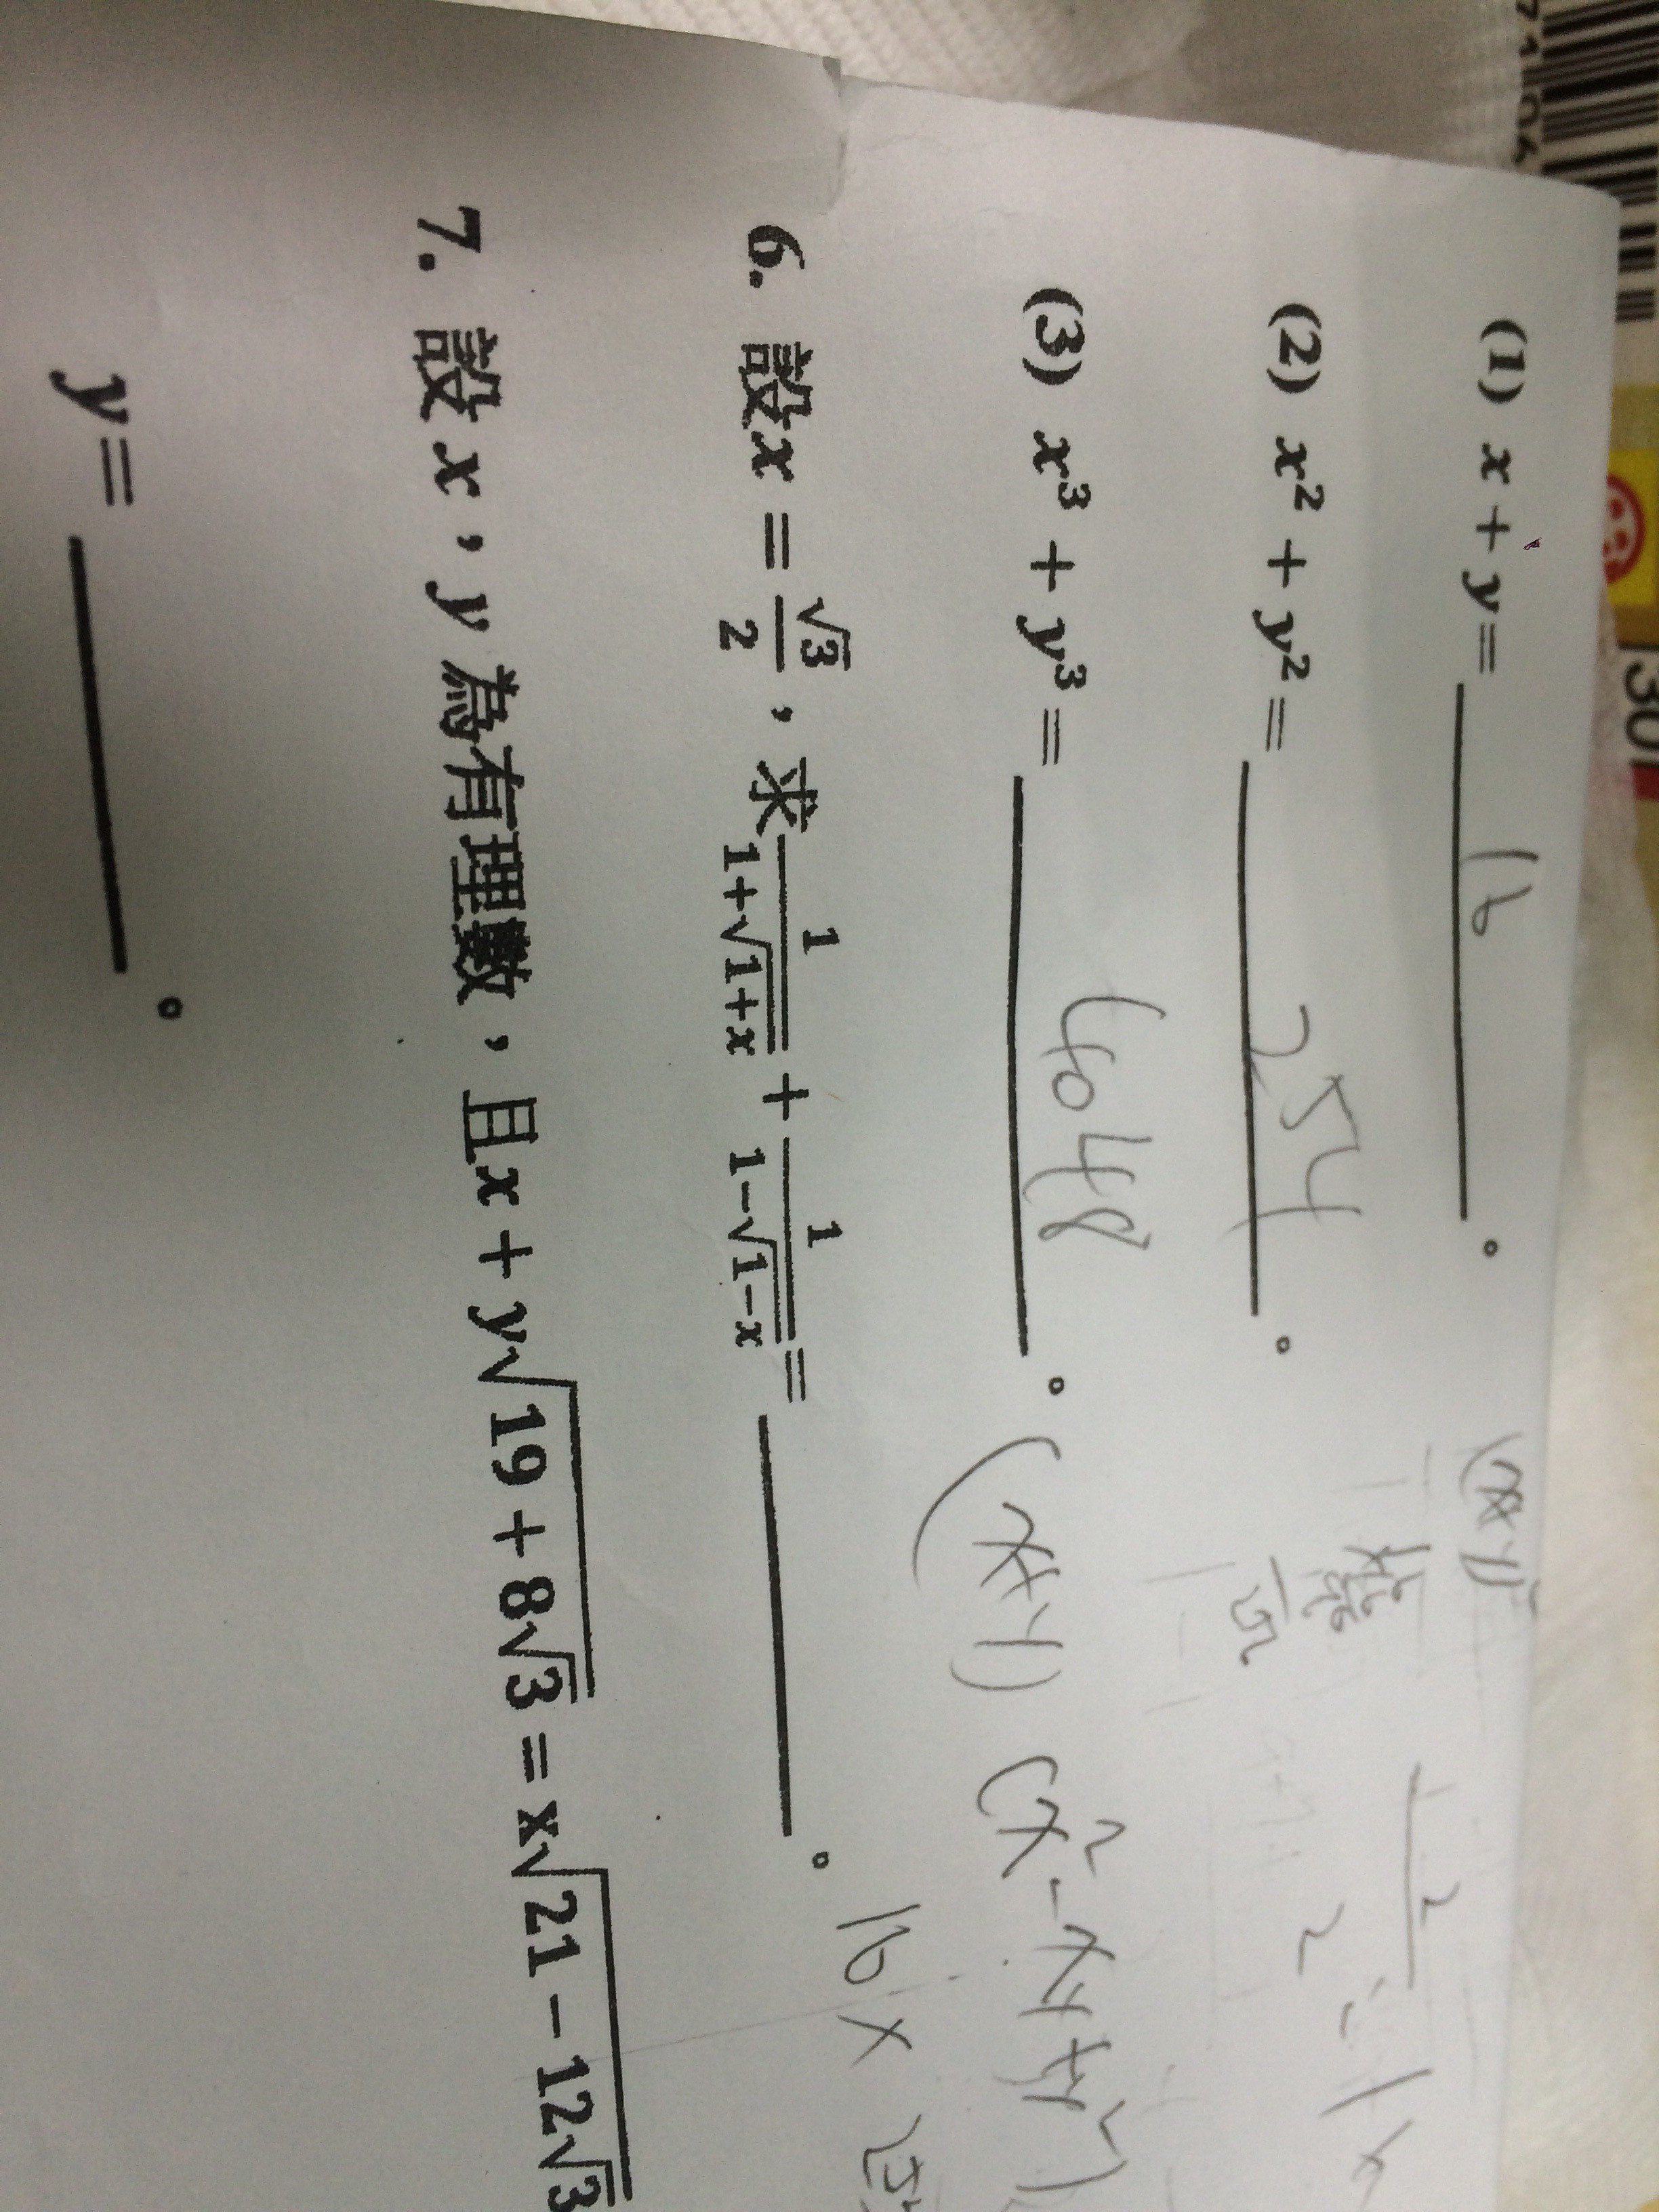 (1) x + y = 16 。
(2) x² + y² = 254 。
(3) x³ + y³ = 4048 。 (x+y) (x²-xy+y²)
16 x
6. 設x = √3/2，求 1/(1+√(1+x)) + 1/(1-√(1-x)) = ______。
7. 設 x，y 為有理數，且x + y√(19 + 8√3) = x√(21 - 12√3
y = ______。